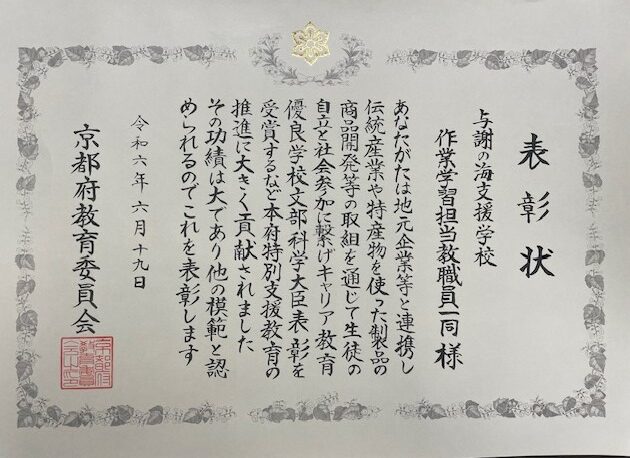 表彰状
与謝の海支援学校
作業学習担当教職員一同 様
あなたがたは地元企業等と連携し
伝統産業や特産物を使った製品の
商品開発等の取組を通じて生徒の
自立と社会参加に繋げキャリア教育
優良学校文部科学大臣表彰を
受賞するなど本府特別支援教育の
推進に大きく貢献されました
その功績は大であり他の模範と認
められるのでこれを表彰します
令和六年六月十九日
京都府教育委員会